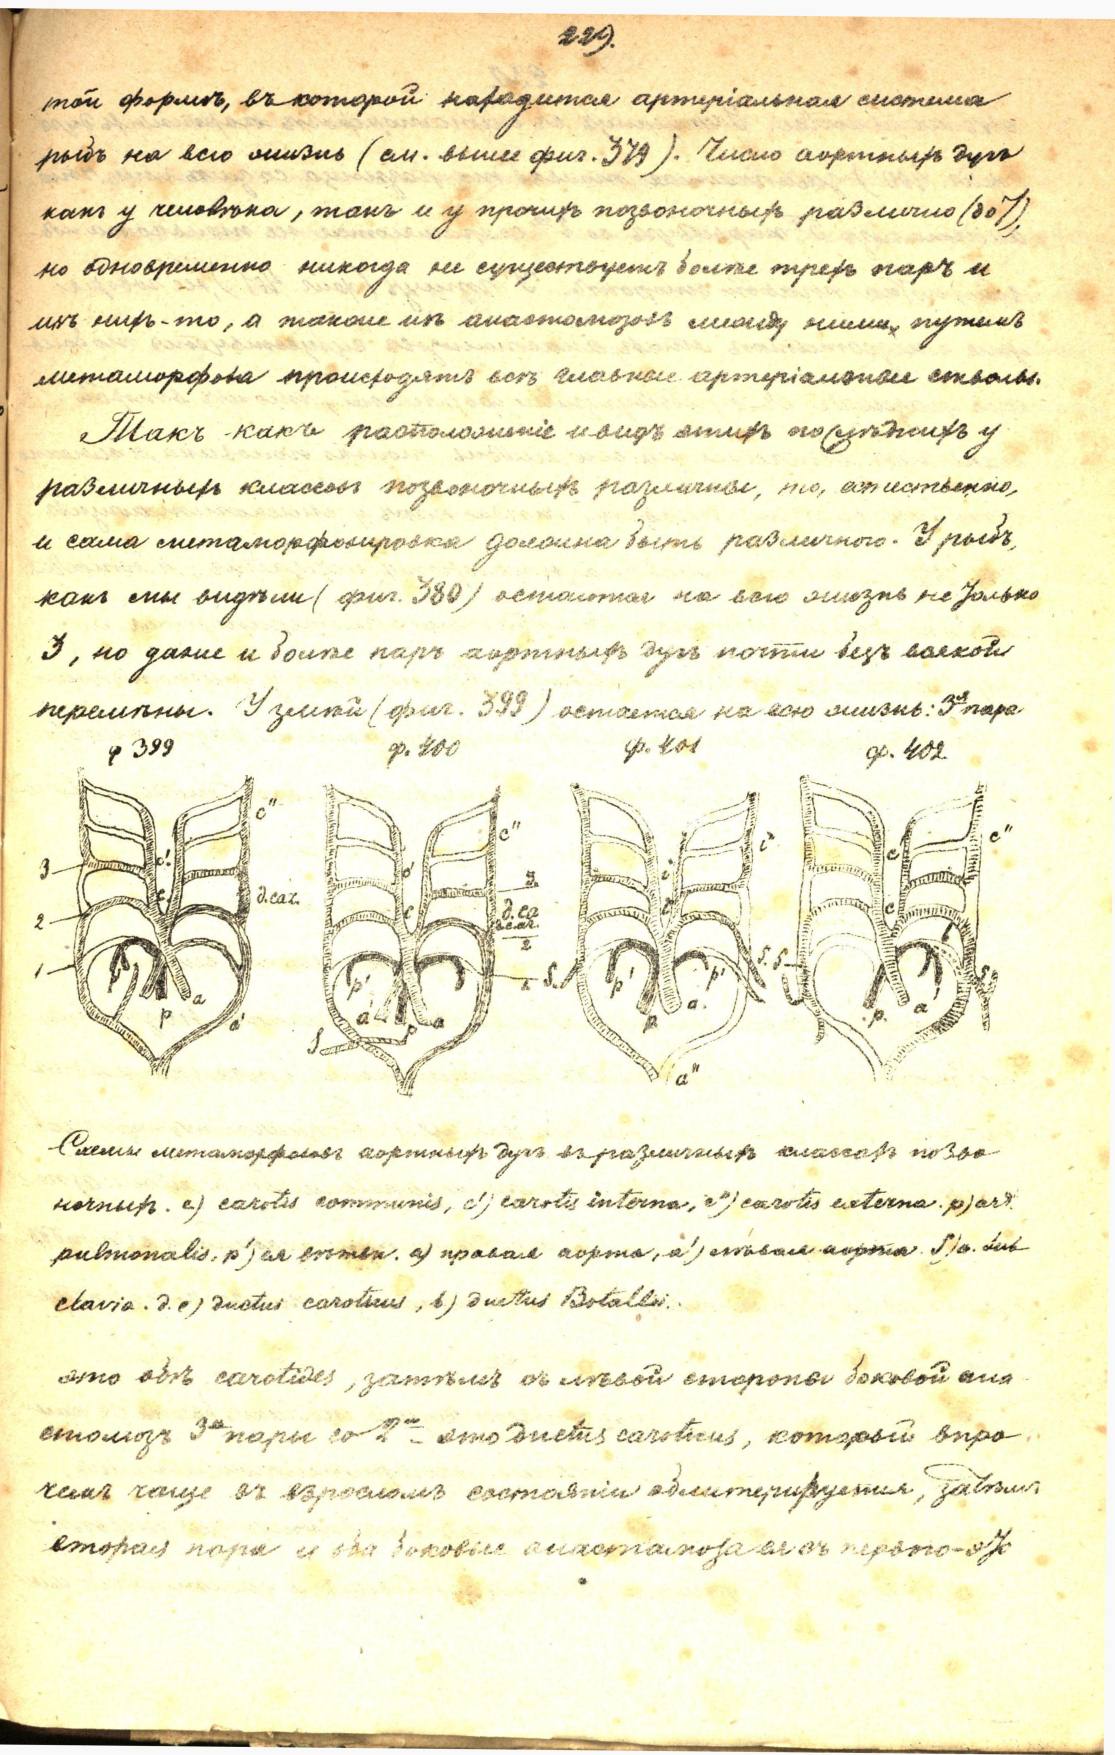 229.
той формѣ, въ которой находится артеріальная система
рыбъ на всю жизнь (см. выше фиг. 379). Число аортныхъ дугъ
какъ у человѣка, такъ и у прочихъ позвоночныхъ различно (до 7),
но одновременно никогда не существуетъ болѣе трехъ паръ и
изъ нихъ-то, а также изъ анастомозовъ между ними, путемъ
метаморфоза происходятъ всѣ главные артеріальные стволы.
Такъ какъ расположеніе и видъ этихъ послѣднихъ у
различныхъ классовъ позвоночныхъ различны, то, естественно,
и сама метаморфозировка должна быть различною. У рыбъ,
какъ мы видѣли (фиг. 380) остаются на всю жизнь не только
3, но даже и болѣе паръ аортныхъ дугъ почти безъ всякой
перемѣны. У змѣй (фиг. 399) остается на всю жизнь: 3я пара
ф 399 ф. 400 ф. 401 ф. 402
c" c" i' c"
3 c' c' i c
c д.саr. 3 c
2 c д.са 2
1 p' p' S. p' p' S. S S
p a a p a p a. p. a
a' S a"
Схемы метаморфозовъ аортныхъ дугъ въ различныхъ классахъ позво
ночныхъ. c) carotis communis, c') carotis interna, c") carotis externa. p) art.
pulmonalis, p') ея вѣтви. a) правая аорта, a') лѣвая аорта S) a. sub
clavia. д.c) ductus caroticus, b) ductus Botalli.
это обѣ carotides, затѣмъ съ лѣвой стороны боковой ана
стомозъ 3й пары со 2й – это ductus caroticus, который впро
чемъ чаще въ взросломъ состояніи облитерируется, затѣмъ
вторая пара и оба боковые анастомоза ея съ первою